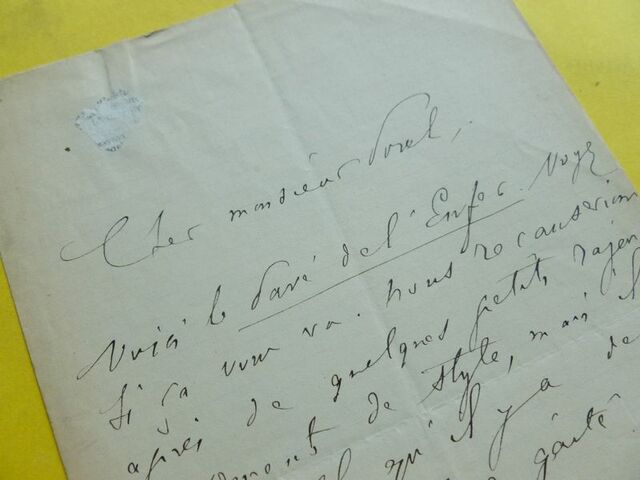 Cher monsieur Porel,
Voici le Pavé de l'Enfer. Voyez
si ça vous va. Nous recauserions
après de quelques petits rajeu
de style, mais il
qu'il y a de
gaîté.